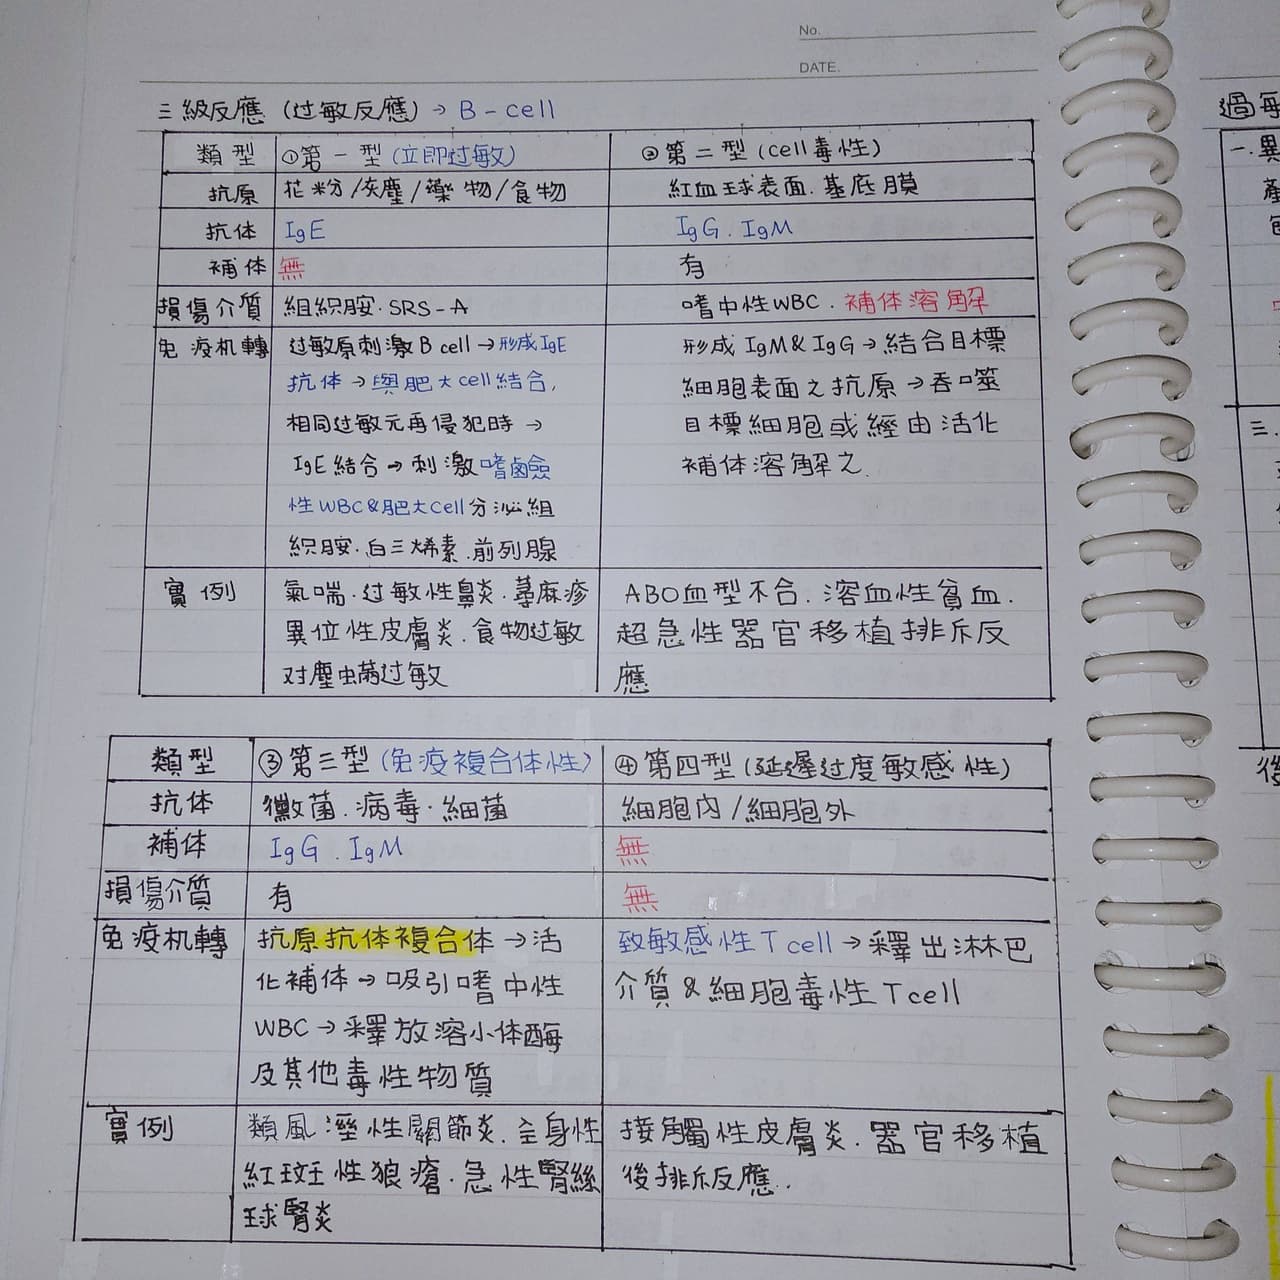 No.
DATE.
三級反應 (过敏反應) → B-cell
類型 ①第一型 (立即过敏) ②第二型 (cell毒性)
抗原 花粉/灰塵/藥物/食物 紅血球表面.基底膜
抗体 IgE IgG . IgM
補体 無 有
損傷介質 組織胺.SRS-A 嗜中性WBC . 補体溶解
免疫机轉 过敏原刺激B cell→形成IgE 形成 IgM&IgG→結合目標
抗体→與肥大cell結合, 細胞表面之抗原→吞噬
相同过敏元再侵犯時→ 目標細胞或經由活化
IgE結合→刺激嗜鹵鹼 補体溶解之.
性WBC&肥大Cell分泌組
織胺.白三烯素.前列腺
實例 氣喘.过敏性鼻炎.蕁麻疹 ABO血型不合.溶血性貧血.
異位性皮膚炎.食物过敏 超急性器官移植排斥反
对塵蟎过敏 應
類型 ③第三型 (免疫複合体性) ④第四型 (延遲过度敏感性)
抗体 黴菌.病毒.細菌 細胞內/細胞外
補体 IgG . IgM 無
損傷介質 有 無
免疫机轉 抗原抗体複合体→活 致敏感性T cell→釋出淋巴
化補体→吸引嗜中性 介質&細胞毒性Tcell
WBC→釋放溶小体酶
及其他毒性物質
實例 類風溼性關節炎.全身性 接觸性皮膚炎.器官移植
紅斑性狼瘡.急性腎絲 後排斥反應..
球腎炎
過敏
一.異
產
三.
後